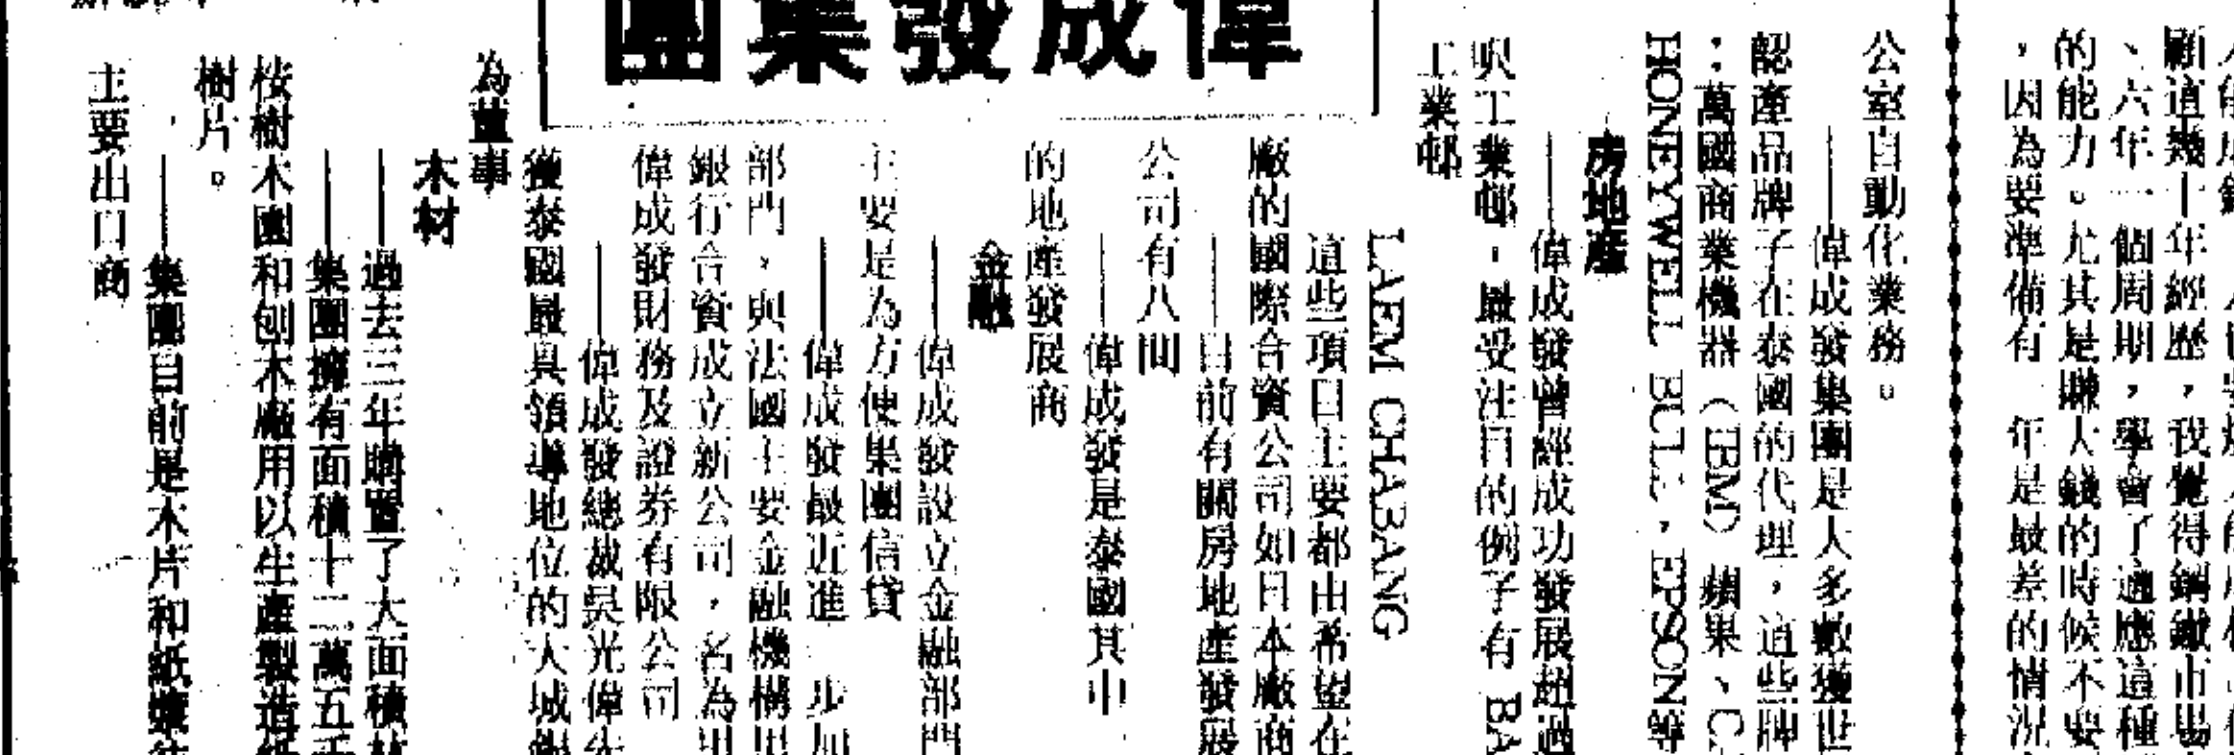 偉成發集團
顧這幾十年經歷，我覺得鋼鐵市場
、六年一個周期，學會了適應這種
的能力。尤其是賺大錢的時候不要
，因為要準備有 年是最差的情況
公室自動化業務。
——偉成發集團是大多數獲世
認產品牌子在泰國的代理，這些牌
：萬國商業機器（IBM）蘋果、C
HONEYWELL BULL，EPSON等
房地產
——偉成發曾經成功發展超過
呎工業邨，最受注目的例子有 BA
工業邨
LAEM CHABANG
這些項目主要都由希望在
廠的國際合資公司如日本廠商
——目前有關房地產發展
公司有八間
——偉成發是泰國其中
的地產發展商
金融
——偉成發設立金融部門
主要是為方便集團信貸
——偉成發最近進 步加
部門，與法國主要金融機構
銀行合資成立新公司，名為
偉成發財務及證券有限公司
——偉成發總裁吳光偉先
獲泰國最具領導地位的大城銀
為董事
木材
——過去三年購置了大面積林
——集團擁有面積十二萬五千
桉樹木園和刨木廠用以生產製造紙
樹片。
——集團目前是木片和紙漿
主要出口商